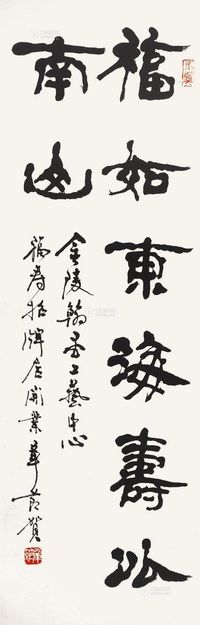 福如東海壽比
南山
金陵翰墨工藝中心
福寿招牌店開業
賀